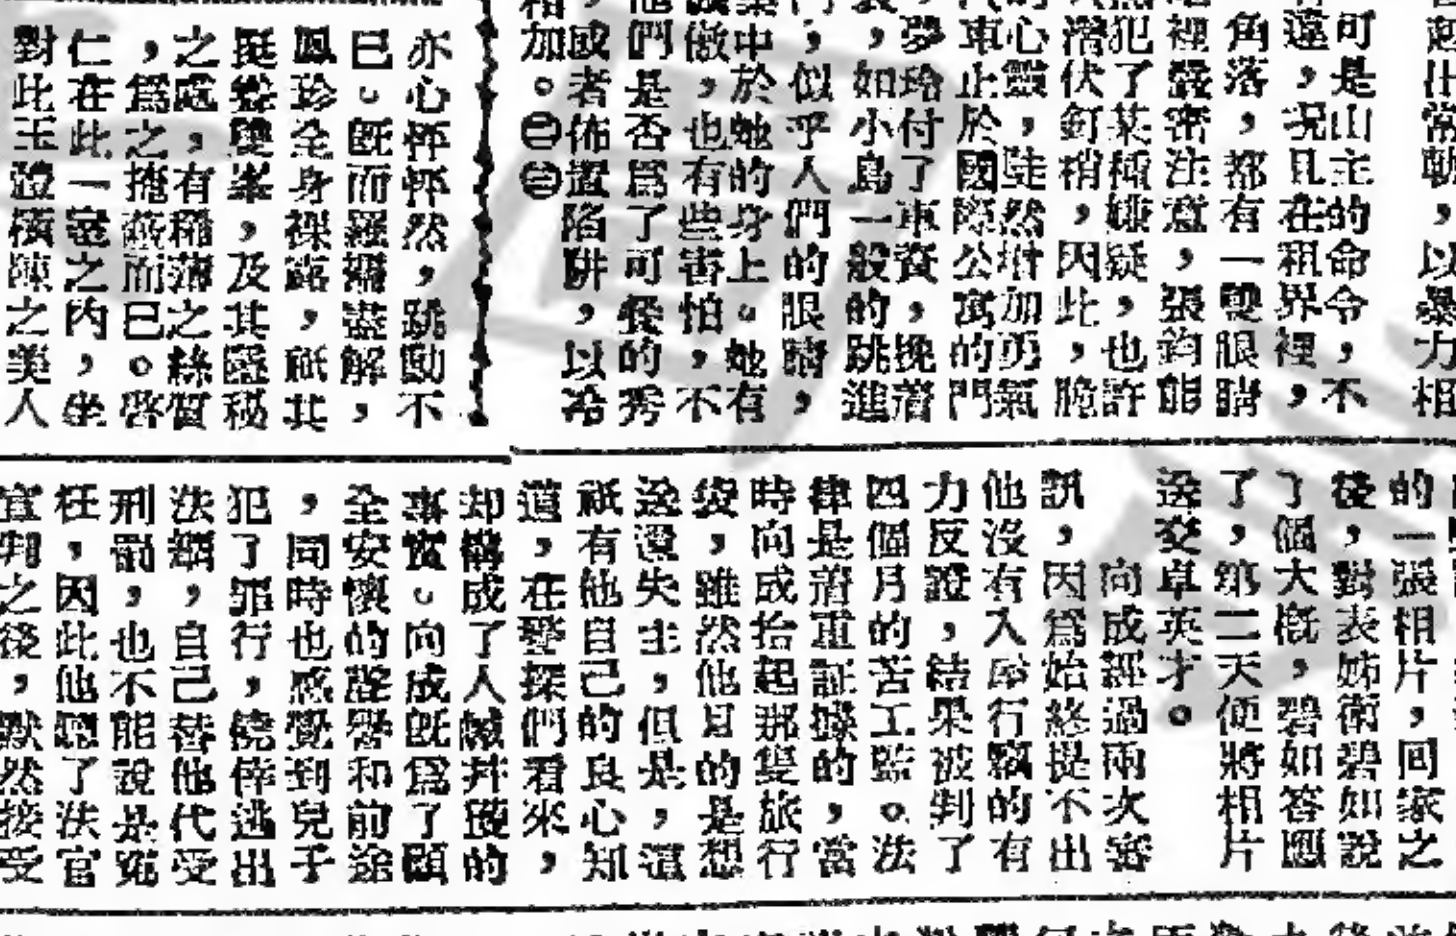 可是山主的命令，不
遠，况且在租界裡，
角落，都有一雙眼睛
裡嚴密注意，張鈞能
犯了某種嫌疑，也許
潛伏釘梢，因此，脆
心靈，陡然增加勇氣
車止於國際公寓的門
，夢玲付了車資，挽着
，如小鳥一般的跳進
，似乎人們的眼睛，
中於她的身上。她有
做，也有些害怕，不
他們是否爲了可餐的秀
，或者佈置陷阱，以冷
相加。㊁㊂
亦心怦怦然，跳動不
已。旣而羅襦盡解，
鳳珍全身裸露，祇其
挺聳雙峯，及其隱秘
之處，有稀薄之絲質
，爲之掩蔽而已。啓
仁在此一室之內，坐
對此玉體橫陳之美人
的一張相片，回家之
後，對表姊衛碧如說
了個大槪，碧如答應
了，第二天便將相片
送交卓英才。
向成經過兩次審
訊，因爲始終提不出
他沒有入屋行竊的有
力反證，結果被判了
四個月的苦工監。法
律是着重証據的，當
時向成拾起那隻旅行
袋，雖然他目的是想
送還失主，但是，這
祇有他自己的良心知
道，在警探們看來，
却構成了人贓并獲的
事實。向成旣爲了顧
全安懷的聲譽和前途
，同時也感覺到兒子
犯了罪行，僥倖逃出
法網，自己替他代受
刑罰，也不能說是冤
枉，因此他聽了法官
宣判之後，默然接受